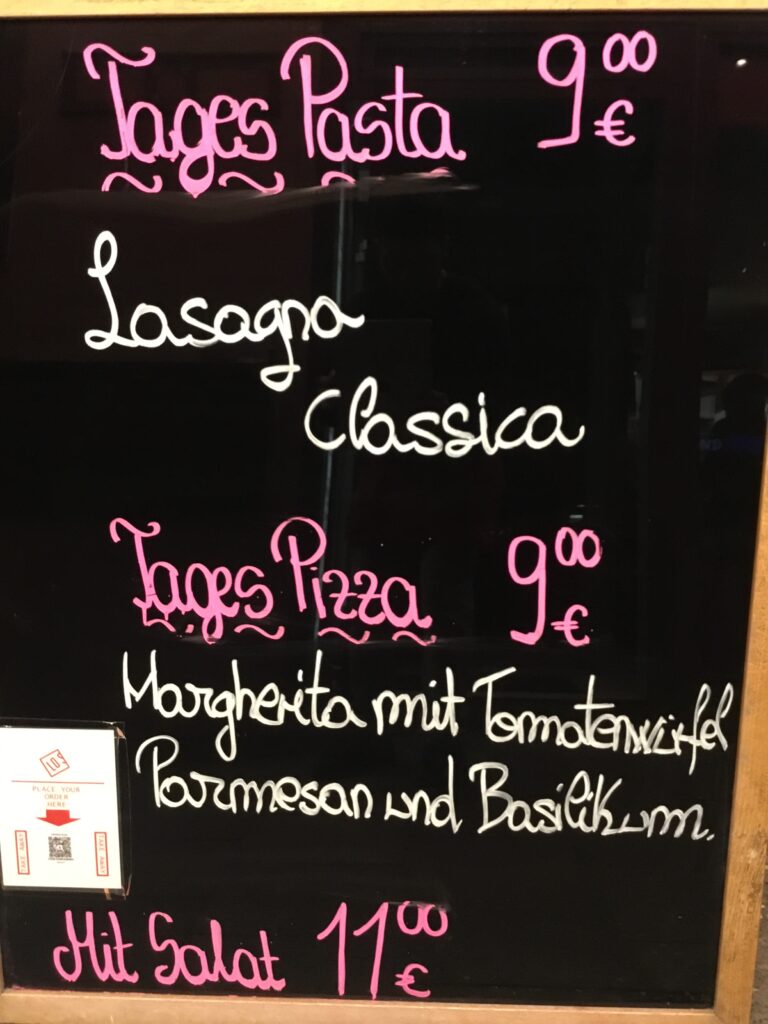 Tages Pasta 9⁰⁰ €
Lasagna
Classica
Tages Pizza 9⁰⁰ €
Margherita mit Tomatenwürfel
Parmesan und Basilikum.
LOS
PLACE YOUR
ORDER
HERE
TAKE AWAY
TAKE AWAY
Mit Salat 11⁰⁰ €